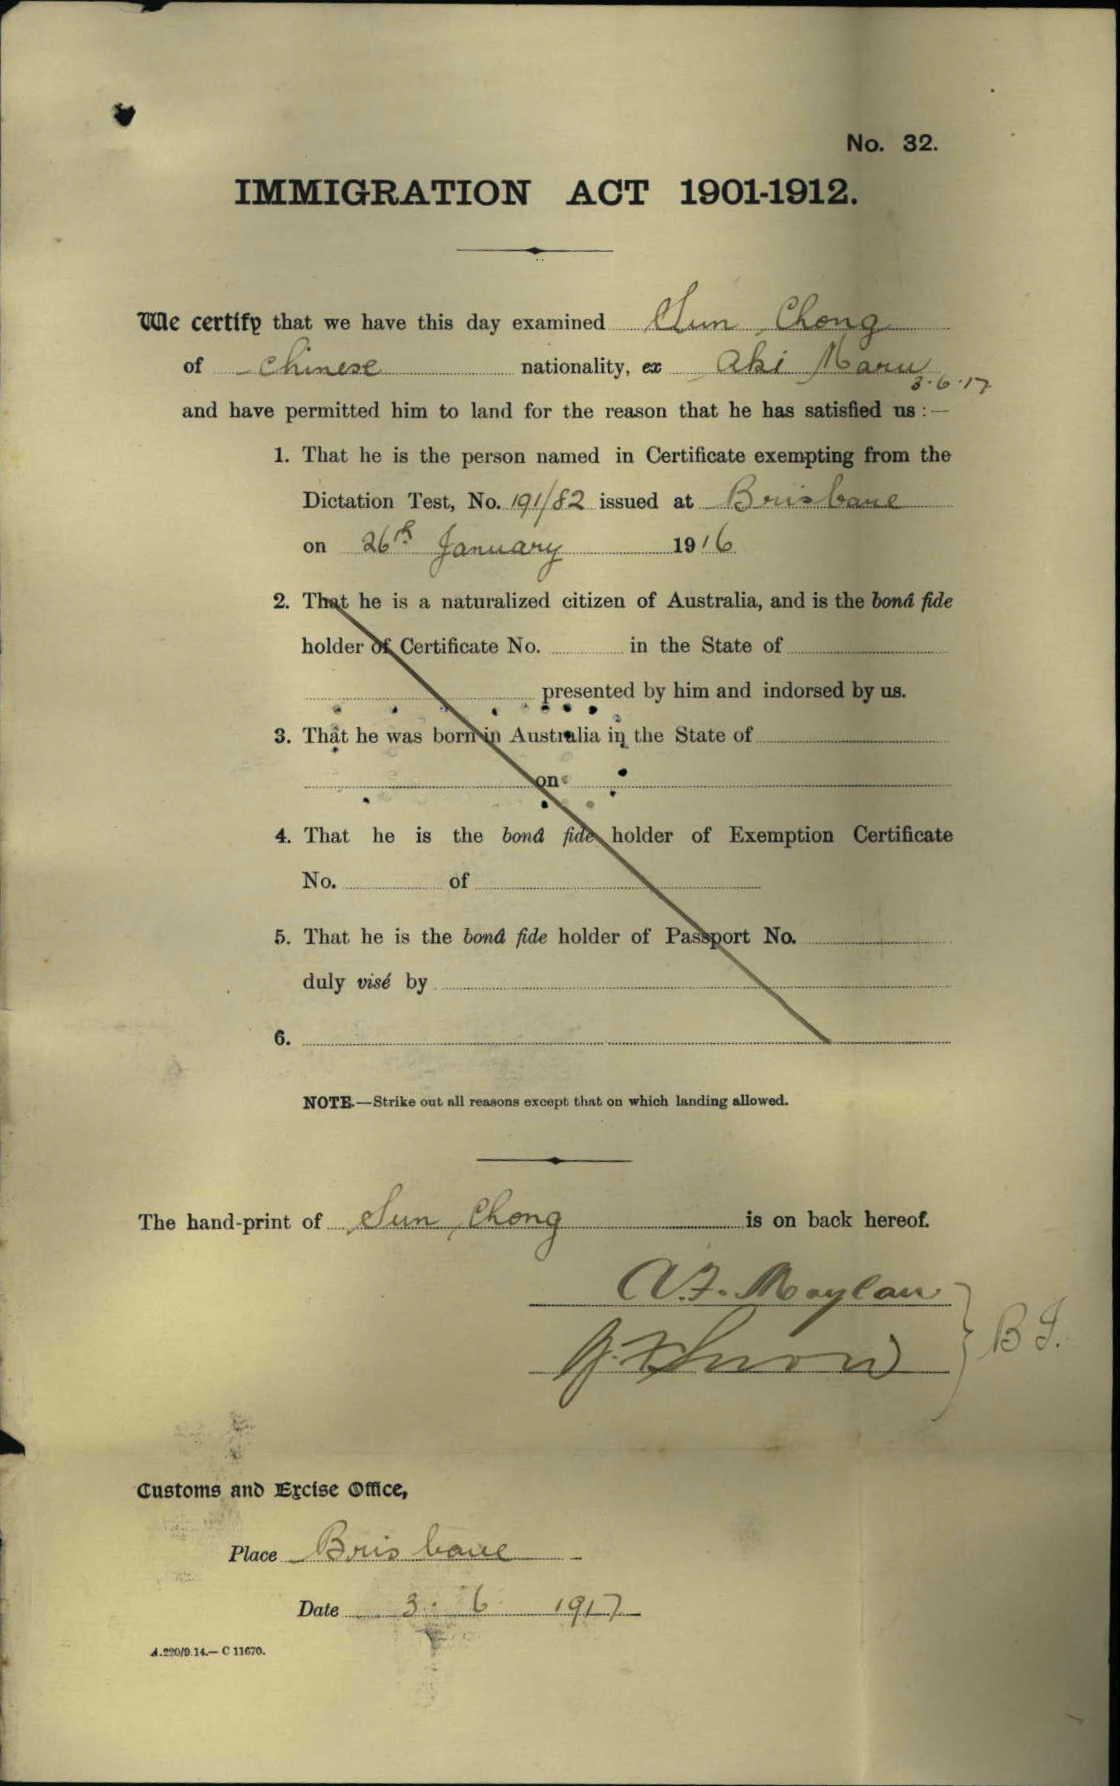 No. 32.
IMMIGRATION ACT 1901-1912.
We certify that we have this day examined Sun Chong
of Chinese nationality, ex Aki Maru
3.6.17
and have permitted him to land for the reason that he has satisfied us :—
1. That he is the person named in Certificate exempting from the
Dictation Test, No. 191/82 issued at Brisbane
on 26th January 1916
2. That he is a naturalized citizen of Australia, and is the bonâ fide
holder of Certificate No. in the State of
presented by him and indorsed by us.
3. That he was born in Australia in the State of
on
4. That he is the bonâ fide holder of Exemption Certificate
No. of
5. That he is the bonâ fide holder of Passport No.
duly visé by
6.
NOTE.—Strike out all reasons except that on which landing allowed.
The hand-print of Sun Chong is on back hereof.
A.F. Moylan
Snow
B I.
Customs and Excise Office,
Place Brisbane
Date 3. 6 1917
A.220/9.14.— C 11670.